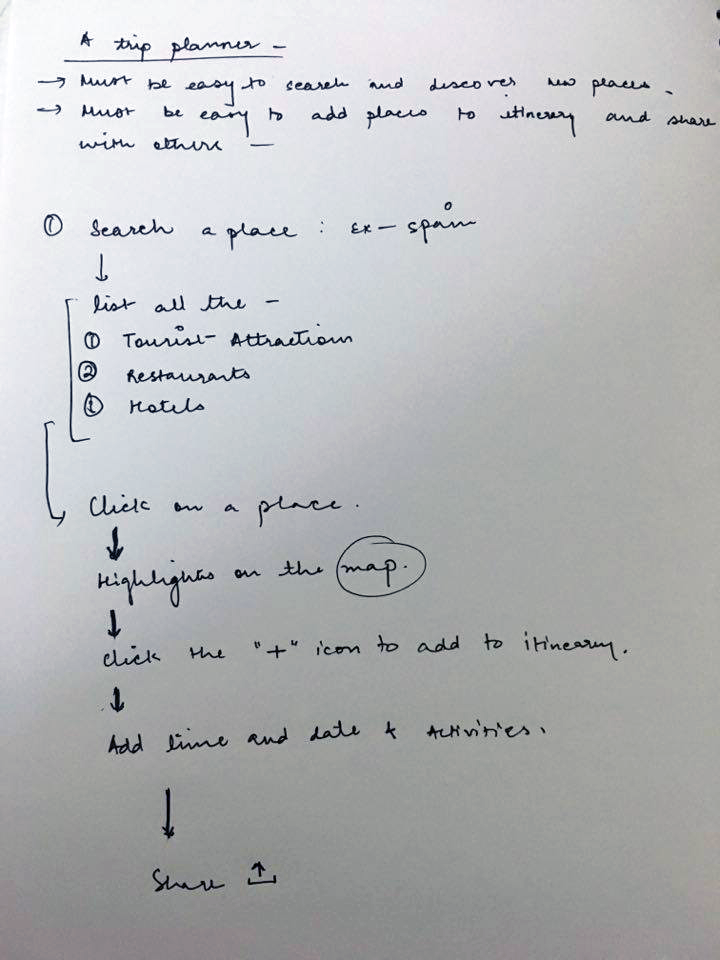 A trip planner -
→ Must be easy to search and discover new places.
→ Must be easy to add places to itinerery and share
with others -
① Search a place : Ex - spain
↓
list all the -
① Tourist Attractions
② Restaurants
① Hotels
Click on a place.
↓
Highlights on the map.
↓
click the "+" icon to add to itinearry.
↓
Add time and date & Activities.
↓
Share